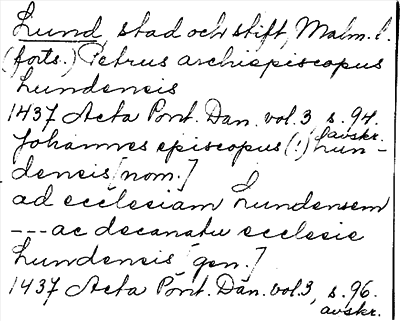 Lund stad och stift, Malm. l.
(forts.) Petrus archiepiscopus
Lundensis
1437 Acta Pont. Dan. vol. 3 s. 94.
avskr.
Johannes episcopus (!) Lun-
densis [nom.]
ad ecclesiam Lundensem
--- ac decanatu ecclesie
Lundensis [gen.]
1437 Acta Pont. Dan. vol. 3, s. 96.
avskr.